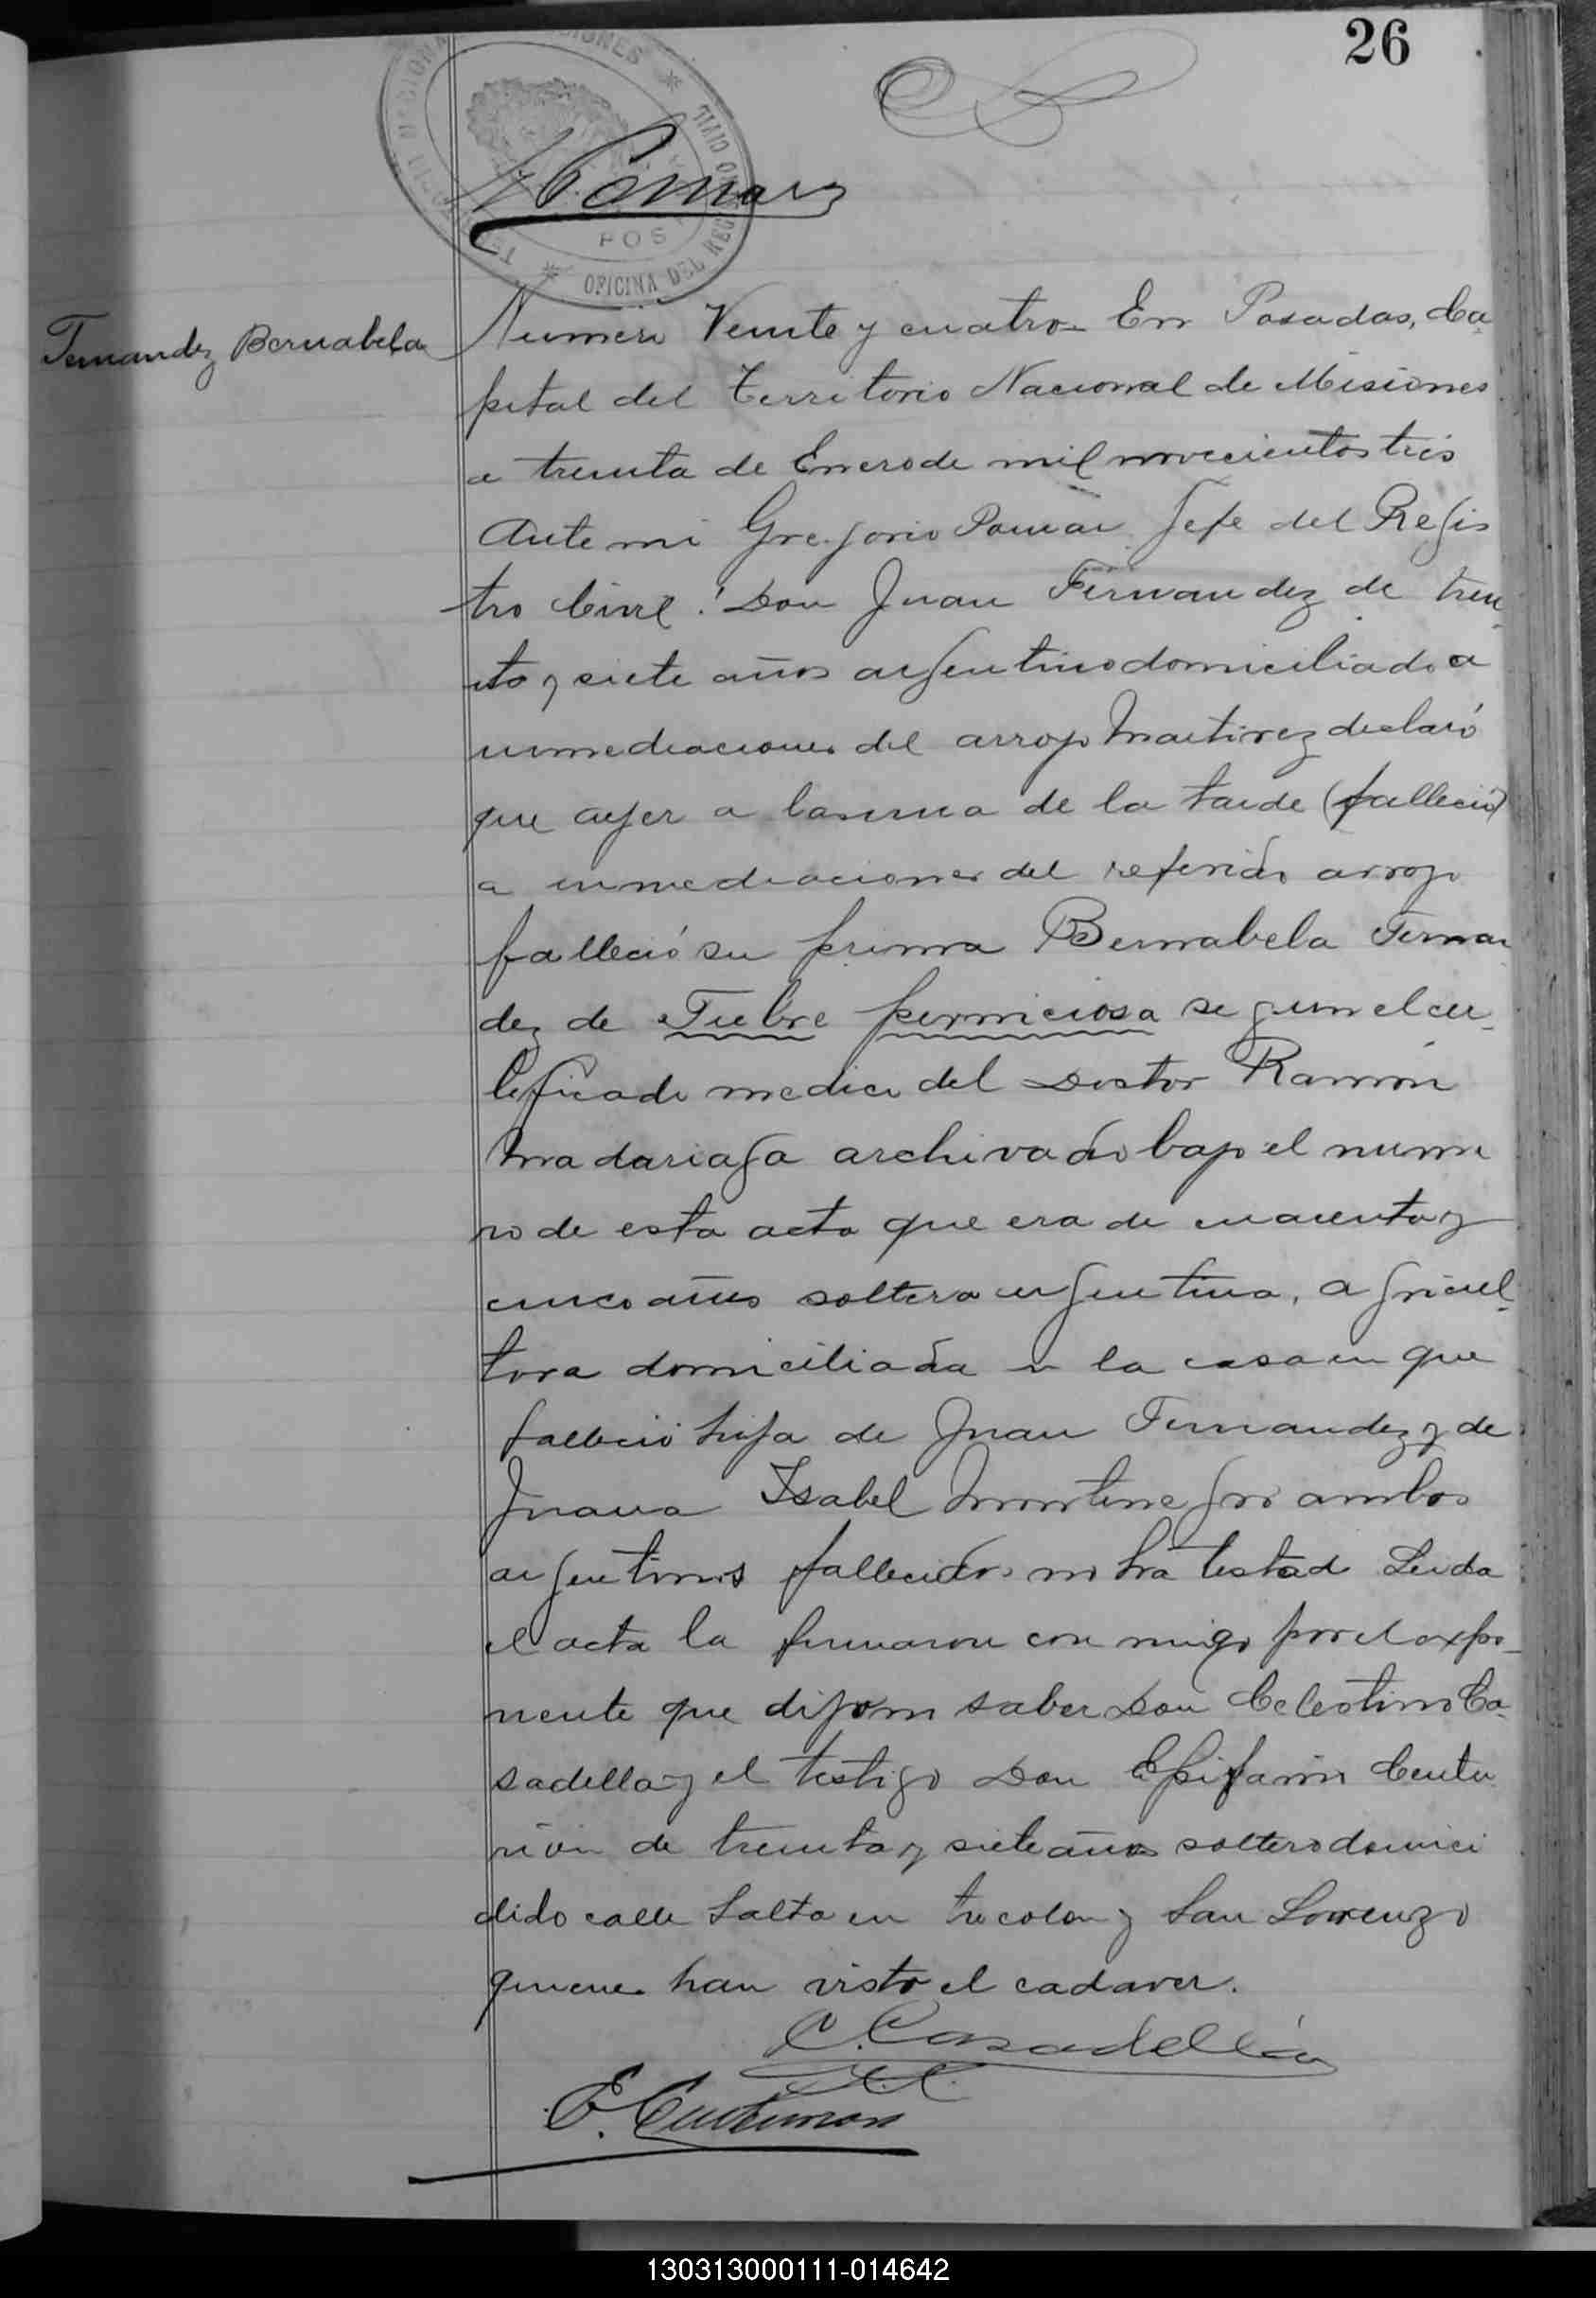 26
OFICINA DEL REGISTRO CIVIL
POS
Fernandez Bernabela
Numero Veinte y cuatro - En Posadas, Ca-
pital del Territorio Nacional de Misiones
a treinta de Enero de mil novecientos tres
Ante mi Gregorio Pomar Jefe del Regis
tro Civil: Don Juan Fernandez de trein-
ta y siete años argentino domiciliado a
inmediaciones del arroyo Martirez declaró
que ayer a las una de la tarde (falleció)
a inmediaciones del referido arroyo
falleció su prima Bernabela Fernan
dez de Fiebre perniciosa segun el cer-
tificado medico del Doctor Ramón
Madariaga archivado bajo el nume
ro de esta acta que era de cuarenta y
cinco años soltera argentina, agricul-
tora domiciliada en la casa en que
falleció hija de Juan Fernandez y de
Juana Isabel Montenegro ambos
argentinos fallecidos no ha testado Leida
el acta la firmaron con migo por el expo-
nente que dijo no saber Don Celestino Ca-
sadella y el testigo Don Epifanio Centu
rión de treinta y siete años soltero domici
dido calle Salta en tre colon y San Lorenzo
quienes han visto el cadaver.
C. Casadella
E. Centurion
130313000111-014642